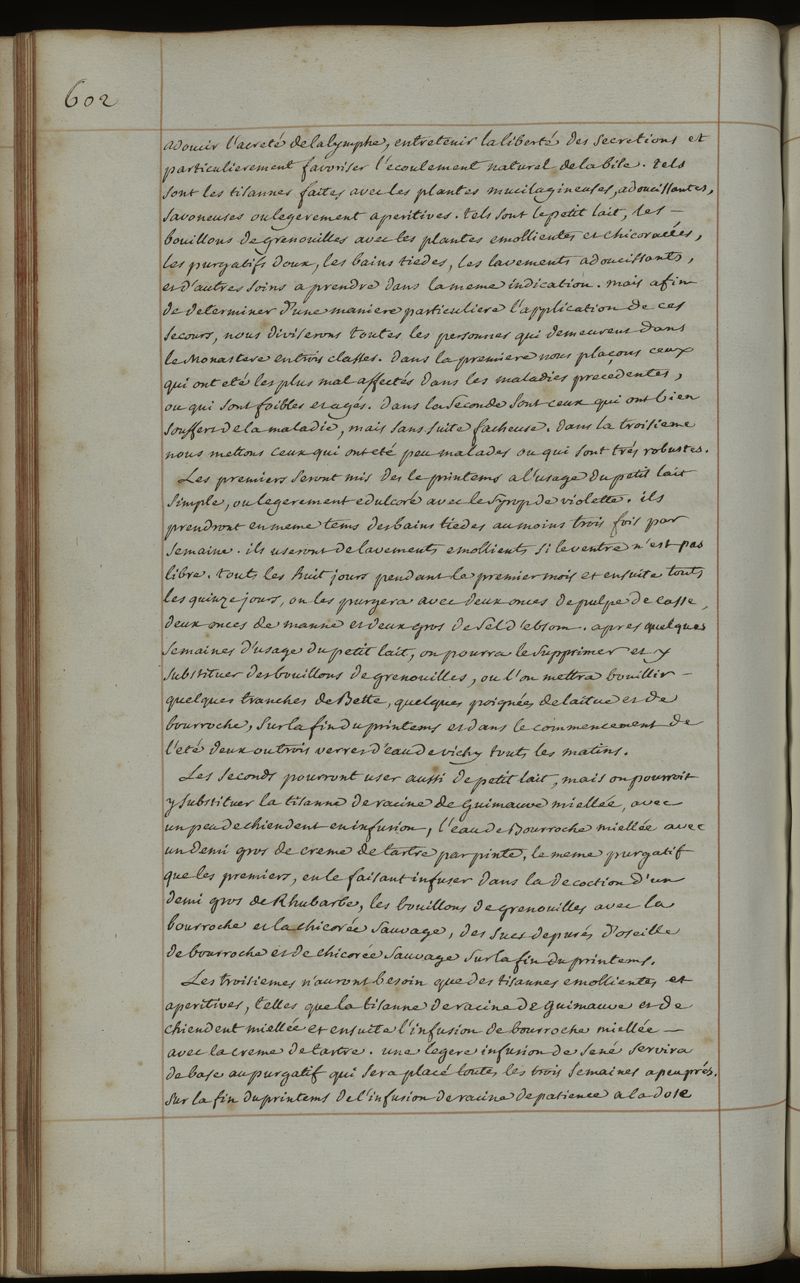 602
adoucir l'acreté de la lymphe, entretenir la liberté des secretions et
particulierement favoriser l'ecoulement naturel de la bile. tels
sont les tisannes faites avec les plantes mucilagineuses, adoucissantes,
savoneuses ou legerement aperitives. tels sont le petit lait, les -
bouillons de grenouilles avec les plantes emollientes et chicoracées,
les purgatifs doux, les bains tiedes, les lavements adoucissants,
et d'autres soins a prendre dans la meme indication. mais afin
de determiner d'une maniere particuliere l'application de ces
secours, nous diviserons toutes les personnes qui demeurent dans
le Monastere en trois classes. dans la premiere nous plaçons ceux
qui ont eté les plus mal affectés dans les maladies precedentes,
ou qui sont foibles et agés. dans la seconde sont ceux qui ont bien
souffert de la maladie, mais sans suite facheuse. dans la troisieme
nous mettons ceux qui ont eté peu malades ou qui sont trés robustes.
Les premiers seront mis des le printems a l'usage du petit lait
simple, ou legerement edulcoré avec le syrop de violette. ils
prendront en meme tems des bains tiedes au moins trois fois par
semaine. ils useront de lavements emollients si le ventre n'est pas
libre. touts les huit jours pendant le premier mois et ensuite touts
les quinze jours, on les purgera avec deux onces de pulpe de casse,
deux onces de manne et deux gros de sel d'ebsom. apres quelques
semaines d'usage du petit lait, on pourra le supprimer et y
substituer des bouillons de grenouilles, ou l'on mettra bouillir -
quelques tranches de Bette, quelques poignées de laitue et de
bourroche, sur la fin du printems et dans le commencement de
l'eté deux ou trois verres d'eau de vichy touts les matins.
Les seconds pourront user aussi de petit lait, mais on pourroit
y substituer la tisanne de racine de Guimauve miellée, avec
un peu de chiendent en infusion, l'eau de Bourroche miellée avec
un demi gros de creme de tartre par pinte, le meme purgatif
que les premiers, en le faisant infuser dans la decoction d'un
demi gros de Rhubarbe, les bouillons de grenouilles avec la
bourroche et la chicorée sauvage, des sucs depurés d'oseille
de bourroche et de chicorée sauvage sur la fin du printems.
Les troisiemes n'auront besoin que des tisannes emollientes et
aperitives, telles que la tisanne de racine de guimauve et de
chiendent miellée et ensuite l'infusion de bourroche miellée -
avec la creme de tartre. une legere infusion de sené servira
de base au purgatif qui sera placé toutes les trois semaines a peu prés.
sur la fin du printems de l'infusion de racine de patience a la dose